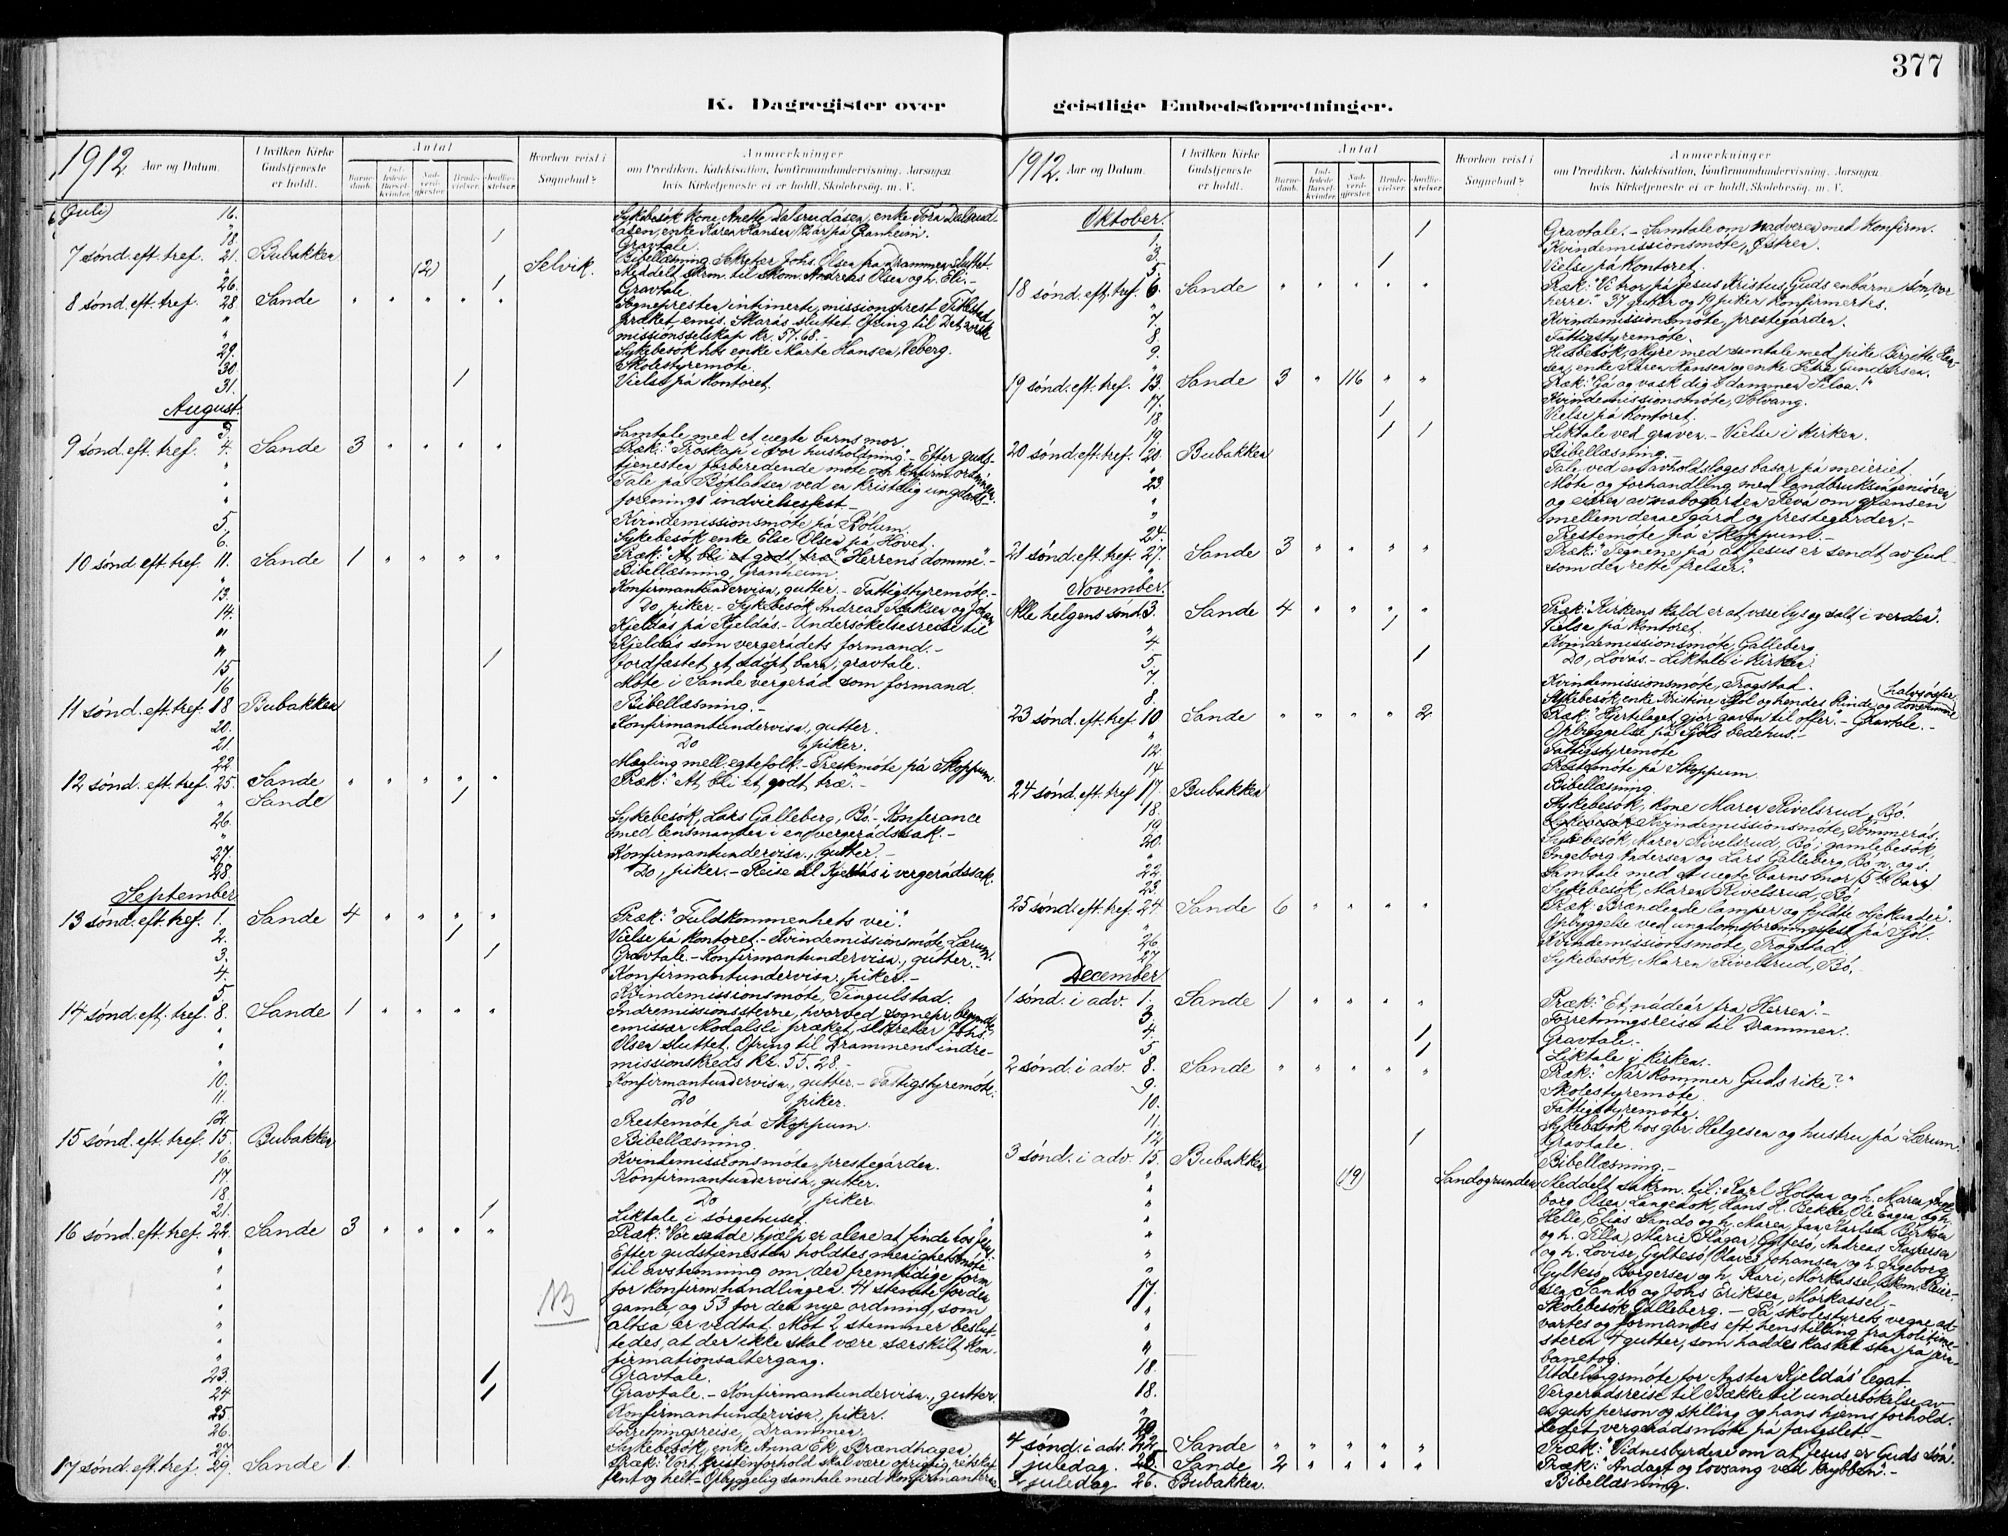 377
K. Dagregister over geistlige Embedsforretninger.
1912 Aar og Datum.
I hvilken Kirke Gudstjeneste er holdt.
Antal
Barnedaab.
Indledede Barselkvinder.
Nadverdgjester.
Brudevielser.
Jordfæstelser.
Hvorhen reist i Sognebud?
Anmærkninger
om Prædiken, Katekisation, Konfirmandundervisning, Aarsagen,
hvis Kirketjeneste ei er holdt, Skolebesøg. m. V.
Juli 16. Sykebesök kone Anette Dalsrudåsen, enke
åsen, enke Karen Hansen, på Granheim.
18. 1 Gravtale.
7 sønd. eft. tref. 21. Bubakken Bibellæsning Sekretær Johs. Olsen fra Drammen sluttet.
" (2) Selvik. Meddelt skrm. til Skom. Andreas Olsen og h. Eli.
26. 1 Gravtale.
8 sønd. eft. tref. 28 Sande " " " " " Sognepresten intimerte, missionsprest
" præket, emis. Skarås sluttet. Ofring til Det norske
" missionsselskap kr. 57.68.
29. Sykebesök hos enke Marte Hansen, Veberg.
30. Skolestyremöte.
31. 1 Vielse på Kontoret.
August.
3. Samtale med et uegte barns mor.
9 sønd. eft. tref. 4. Sande 3 " " " " Præk: "Troskap i vor husholdning". Efter guds-
" tjenesten forberedende möte om konfirm. ordningen.
" Tale på Böplassen ved en kristelig ungdoms-
" forenings indvielsesfest.
5. Kvindemissionsmöte på Rölum.
6. Sykebesök enke Else Olsen på Hovet.
10 sønd eft. tref. 11. Sande 1 " " " " Præk: "Herrens domme".
" Bibellæsning, Granheim.
13. Konfirmantundervisn., gutter. - Fattigstyremöte.
14. Do, piker. - Sykebesök Andreas Isaksen og
" Kjeldås på Kjeldås. - Undersökelsesreise til
" Kjeldås som vergerådets formand.
15 1 Jordfæstet et udöpt barn, gravtale.
16 Möte i Sande vergeråd som formand.
11 sønd. eft. tref. 18 Bubakken Bibellæsning.
20. Konfirmantundervisn., gutter.
21 Do piker.
22 Mægling mell. egtefolk. - Prestemöte på Skoppum.
12 sønd. eft. tref. 25. Sande " " " " " Præk: "At bli et godt træ".
" Sande 1
26. Sykebesök, Lars Galleberg, Bö. - Konferance
" med lensmanden i en vergerådssak.
27. Konfirmantundervisn., gutter.
28. Do, piker. - Reise til Kjeldås i vergerådssak.
September
13 sønd. eft. tref. 1. Sande 4 " " " " Præk: "Fuldkommenhets vei".
2. 1 Vielse på kontoret. - Kvindemissionsmöte, Lærum.
3. 1 Gravtale. - Konfirmantundervisn., gutter.
4. Konfirmantundervisn., piker.
5 Kvindemissionsmöte, Tingulstad.
14 sønd. eft. tref. 8. Sande 1 " " " " Indremissionsstevne, hvorved sognepr. begyndte,
" emissær Modalsli præket, sekretær Johs.
" Olsen sluttet. Ofring til Drammens indre-
" missionskreds kr. 55.28.
10. Konfirmantundervisn., gutter. - Fattigstyremöte.
11. Do piker.
12. Prestemöte på Skoppum.
15 sønd. eft. tref. 15. Bubakken Bibellæsning
16. Kvindemissionsmöte, prestegården.
17. Konfirmantundervisn., gutter.
18. Do piker
21. 1 Liktale i sörgehuset.
16 sønd. eft. tref. 22. Sande 3 " " " " Præk: "Vor sande hjælp er alene at finde hos Jesus".
" Efter gudstjenesten holdtes menighetsmöte
" til avstemning om den fremtidige form
" for konfirm. handlingen. 41 stemte for den
NB
" gamle og 53 for den nye ordning, som
" altså er vedtat. Mot 2 stemmer beslut-
" tedes, at der ikke skal være særskilt kon-
" firmationsaltergang.
23. 1 Gravtale.
24 1 Gravtale. - Konfirmantundervisn., gutter.
25 Konfirmantundervisn., piker.
26. Forretningsreise, Drammen.
27. Sykebesök, enke Anna Ek, Brændhagen
17 sønd. eft. tref. 29. Sande 1. Præk: "Vort kristenforhold skal være oprigtig,
og helt". - Opbyggelig samtale med Konfirmanterne.
1912. Aar og Datum.
I hvilken Kirke Gudstjeneste er holdt.
Antal
Barnedaab.
Indledede Barselkvinder.
Nadverdgjester.
Brudevielser.
Jordfæstelser.
Hvorhen reist i Sognebud?
Anmærkninger
om Prædiken, Katekisation, Konfirmandundervisning, Aarsagen,
hvis Kirketjeneste ei er holdt, Skolebesøg. m. V.
Oktober.
1. 1 Gravtale. - Samtale om nadveren med Konfirm.
3. Kvindemissionsmöte, Östren.
5. 1 Vielse på Kontoret.
18 sønd. eft. tref. 6. Sande " " " " " Præk: "Vi tror på Jesus Kristus, Guds enbårne sön, vor
" herre". 37 gutter og 19 piker konfirmertes.
7. Kvindemissionsmöte, prestegården.
8. Fattigstyremöte.
9. Husbesök, med samtale med pike Birgitte
" enke Karen Hansen og enke Petra Gundersen.
19 sønd. eft. tref. 13. Sande 3 " 116 " " Præk: "Gå og vask dig i dammen Siloa!"
17. Kvindemissionsmöte, Solvang.
18 1 Vielse på Kontoret.
19 1 1 Liktale ved graven. - Vielse i kirken.
20 sønd. eft. tref. 20. Bubakken Bibellæsning.
" Tale ved en avholdslages basar på meieriet.
23 Möte og forhandling med Landbruksingeniören
" og eieren av nabogården Revå om grænsen
" mellem denne gård og prestegården.
24. Prestemöte på Skoppum.
21 sønd. eft. tref. 27. Sande 3 " " " " Præk: "Tegnene på at Jesus er sendt av Gud
" som den rette frelser".
November.
Alle helgens sønd. 3. Sande 4 " " " " Præk: "Kirkens kald er at være lys og salt i verden".
" 1 Vielse på Kontoret.
4. Kvindemissionsmöte, Galleberg
5. 1 Do, Lövås. - Liktale i kirken.
7. Kvindemissionsmöte, Trogstad.
8. Sykebesök, enke Kristine Sjöl og hendes blinde og dövstumme halvsöster
23 sønd. eft. tref. 10 Sande " " " " 2 Præk: "Hjertelaget gjör gaven til offer". - Gravtale.
" Opbyggelse på Sjöls bedehus.
12. Fattigstyremöte
14. Prestemöte på Skoppum
24 sønd. eft. tref 17. Bubakken Bibellæsning
18. Sykebesök, kone Maren Rivelsrud, Bö.
19. Kvindemissionsmöte, Sommerås.
20. Sykebesök, Maren Rivelsrud, Bö; gamlebesök,
" Ingeborg Andersen og Lars Galleberg, Bö n. og s.
22. Samtale med et uegte barns mor (5te barn)
23. Sykebesök, Maren Rivelsrud, Bö
25 sønd. eft. tref. 24 Sande 6 " " " " Præk: "Brændende lamper og fyldte oljekander".
" Opbyggelse ved ungdomsforeningsfest på Sjöl.
26. Kvindemissionsmöte, Trogstad.
27. Sykebesök, Maren Rivelsrud, Bö.
December
1 sønd. i adv. 1. Sande 1 " " " " Præk: "Et nådeår fra Herren".
3. Forretningsreise til Drammen.
4. 1 Gravtale.
5 1 Liktale i kirken.
2 sønd. i adv. 8. Sande " " " " " Præk: "Når kommer Guds rike?"
9. Skolestyremöte
10. Fattigstyremöte.
11. Sykebesök hos gbr. Helgesen og hustru på Lærum.
12 1 Gravtale.
3 sønd. i adv. 15. Bubakken Bibellæsning.
" (19) Sandogrunden Meddelt sakrm. til: Karl Holtan og h. Maren,
" borg Olsen, Langebok, Hans H. Bekke, Ole Engen og h.
" Helle, Elias Sando og h. Maren, Jan Karlsen, Berköen
" og h. Ella, Marie Plagan, Gyltesö, Andreas Kaspersen
" og h. Lovise, Gyltesö, Olaves Johansen og h. Ingeborg,
" Gyltesö, Borgersen og h. Kari, Mörkassel, skom.
17. Sando og Johs Eriksen, Mörkassel.
" Skolebesök, Galleberg. - På skolestyrets vegne ad-
" vartes og formantes eft. henstilling fra politime-
" steren 4 gutter, som hadde kastet sten på jern-
" banetog.
18. Utdelingsmöte for Aasten Kjeldås' legat.
18. Vergerådsreise til Bække til undersökelse av
" person og stilling og hans hjems forhold.
20. vergerådsmöte på fængslet.
4 sønd. i adv. 22. Sande " " " " " Præk: "Vidnesbyrdene om at Jesus er Guds Sön".
1 juledag. 25. Sande 2 " " " " Præk: "Andagt og lovsang ved krybben".
2 juledag 26. Bubakken. Bibellæsning.